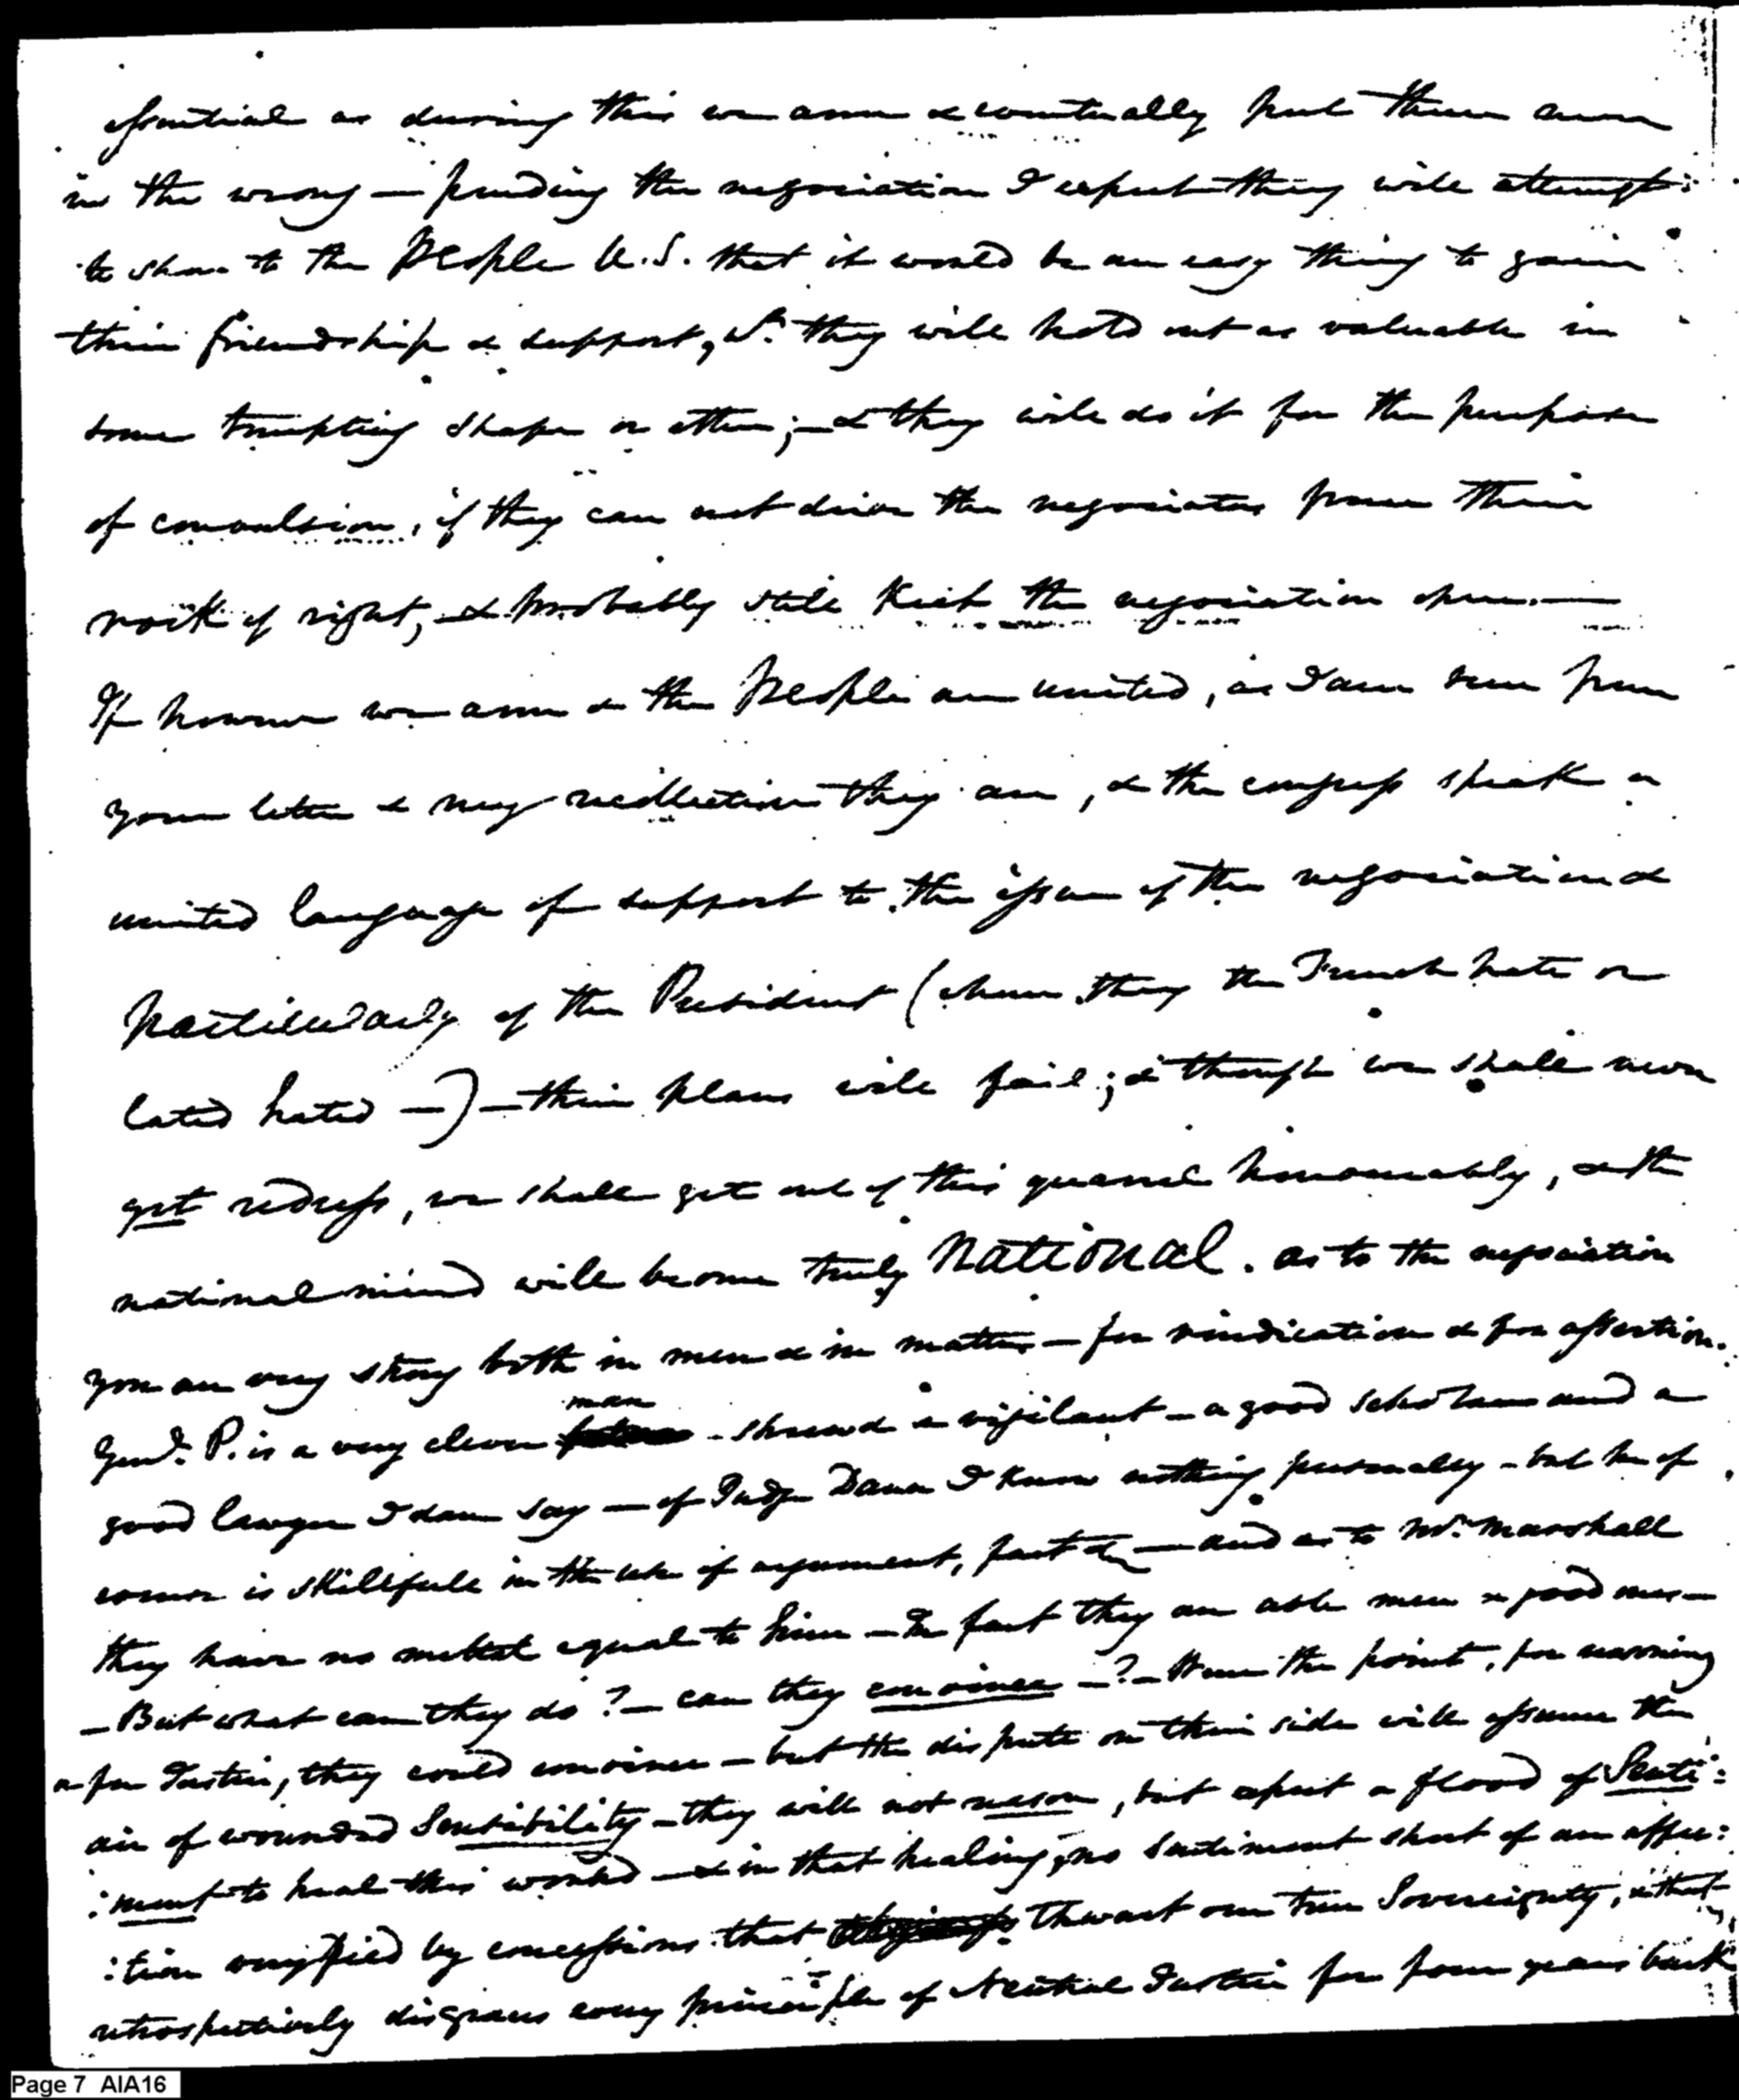 essential as during this we arm & eventually put them more
in the wrong — pending the negociation I expect they will attempt:
to show to the People U.S. that it would be an easy thing to gain
their friendship & support, wh. they will hold out as valuable in
some tempting shape or other; — & they will do it for the purpose
of convulsion, if they can not drive the negociators from their
rock of right, & probably still keep the negociation open. —
If however we arm & the People are united, as I am sure from
your letter & my recollection they are, & the congress speak a
united language of support to the issue of the negociation &
particularly of the President (whom they the French hate or
lated hated —) — their plans will fail; & though we shall never
get redress, we shall get out of this quarrel honourably, & the
national mind will become truly National. as to the negociation
you are very strong both in men & in matter — for vindication & for assertion.
Genl. P. is a very clever man - shrewd & vigilant — a good scholar and a
good lawyer I dare say — of Judge Dana I know nothing personally — but he of
course is skillfull in the use of argument, fact &c — and as to Mr. Marshall
they have no equal to him — In fact they are able men & good ones —
— But what can they do? — can they convince —? — Were the point, for warning
or for Justice, they could convince — but the dispute on their side will assume the
air of wounded Sensibility — they will not reason, but expect a flood of Senti:
:ment to heal this wound — & in that healing, no sentiment short of an affec:
:tion by concessions that thwart our true Sovereignty, & that
retrospectively disgraces every principle of Neutral Justice for four years back
Page 7 AIA16